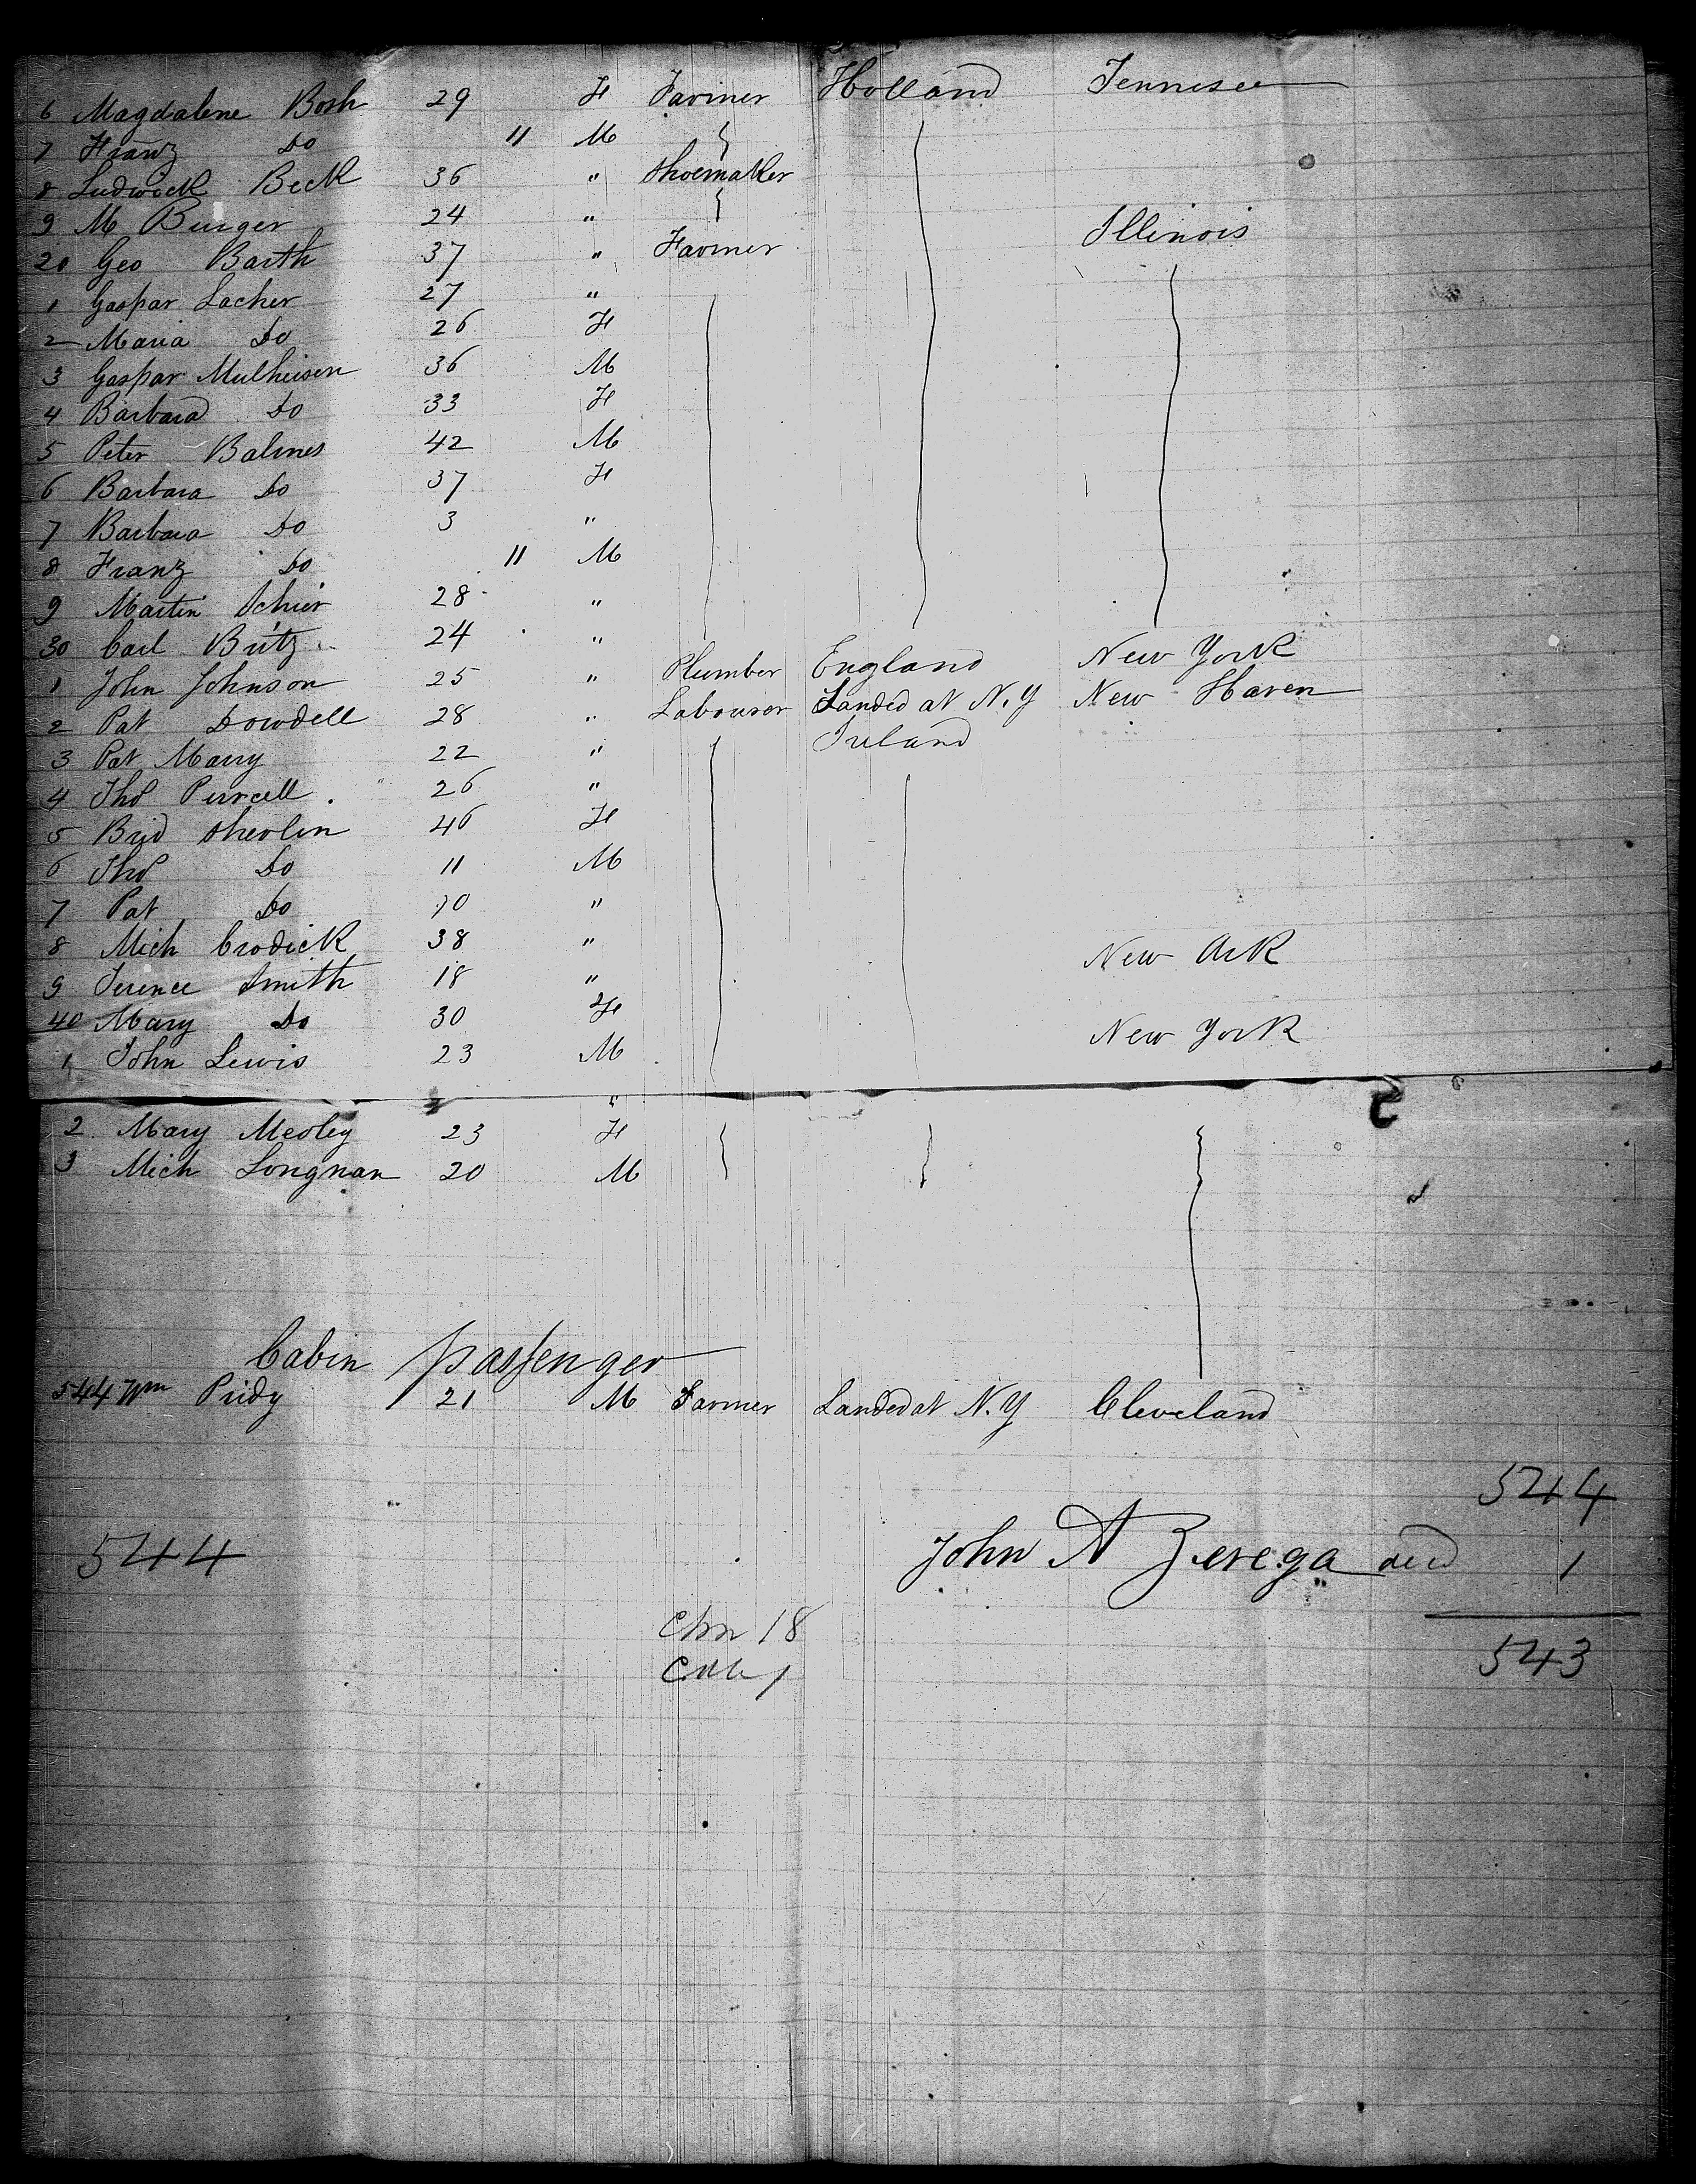 6 Magdalene Bosh 29 F Farmer Holland Tennisee
7 Franz Do 11 M
8 Ludwick Beck 36 " Shoemaker
9 M Burger 24 "
20 Geo Barth 37 " Farmer Illinois
1 Gaspar Lacher 27 "
2 Maria Do 26 F
3 Gaspar Mulheisen 36 M
4 Barbara Do 33 F
5 Peter Balmes 42 M
6 Barbara Do 37 F
7 Barbara Do 3 "
8 Franz Do 11 M
9 Martin Schier 28 "
30 Carl Butz 24 "
1 John Johnson 25 " Plumber England New York
2 Pat Dowdell 28 " Labourer Landed at N.Y New Haven
3 Pat Marry 22 " Ireland
4 Tho Purcell 26 "
5 Brid Shevlin 46 F
6 Tho Do 11 M
7 Pat Do 10 "
8 Mich Crodick 38 "
9 Terence Smith 18 " New Ark
40 Mary Do 30 F
1 John Lewis 23 M New York
2 Mary Medley 23 F
3 Mich Longnan 20 M
Cabin passenger
544 Wm Pridy 21 M Farmer Landed at N.Y Cleveland
544
544 John A Zerega ded 1
543
Chn 18